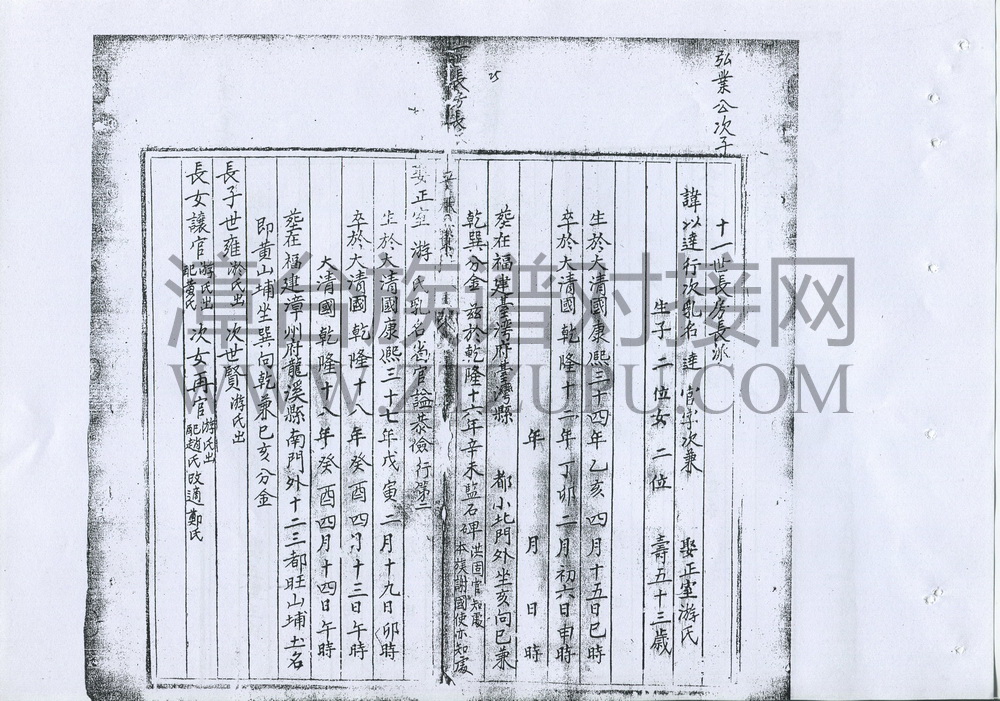 弘業公次子
十一世長房長派
諱以達行次乳名達官字次兼 娶正室游氏
生子二位女二位 壽五十三歲
生於大清國康熙三十四年乙亥四月十五日巳時
卒於大清國乾隆十二年丁卯二月初六日申時
年 月 日 時
塟在福建臺灣府臺灣縣 都小北門外坐亥向巳兼
乾巽分金 茲於乾隆十六年辛未監石碑 洪固官知處
本族謝國使亦知處
25
長房長
娶正室游氏乳名 官謚恭儉行第二
生於大清國康熙三十七年戊寅二月十九日卯時
卒於大清國乾隆十八年癸酉四月十三日午時
大清國乾隆十八年癸酉四月十四日午時
塟在福建漳州府龍溪縣南門外十二三都旺山埔土名
即黄山埔坐巽向乾兼巳亥分金
長子世雍 游氏出 次世賢 游氏出
長女讓官 游氏出 配黄氏 次女再官 游氏出 配趙氏改適鄭氏
漳台族谱对接网
WWW.ZTZUPU.COM